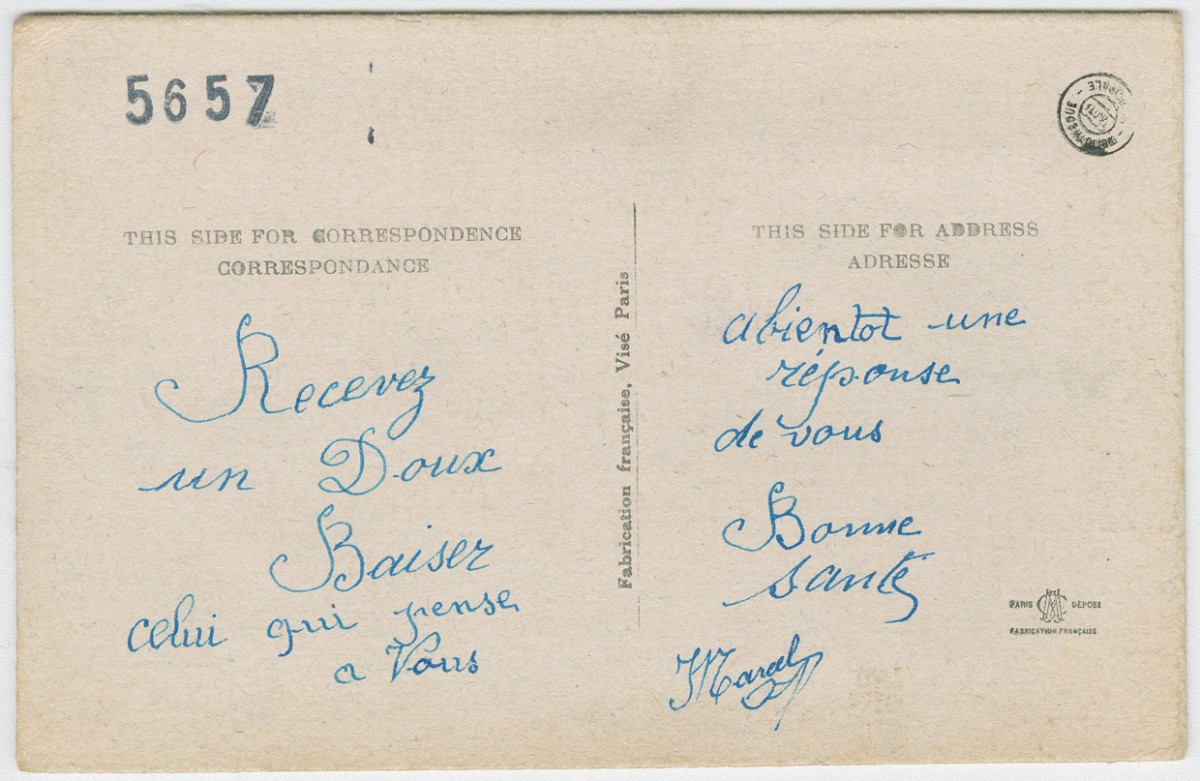 5657
THIS SIDE FOR CORRESPONDENCE
CORRESPONDANCE
Recevez
un Doux
Baiser
celui qui pense
a Vous
Fabrication française, Visé Paris
THIS SIDE FOR ADDRESS
ADRESSE
abientot une
réponse
de vous
Bonne
santé
Marcel
PARIS DEPOSE
FABRICATION FRANÇAISE